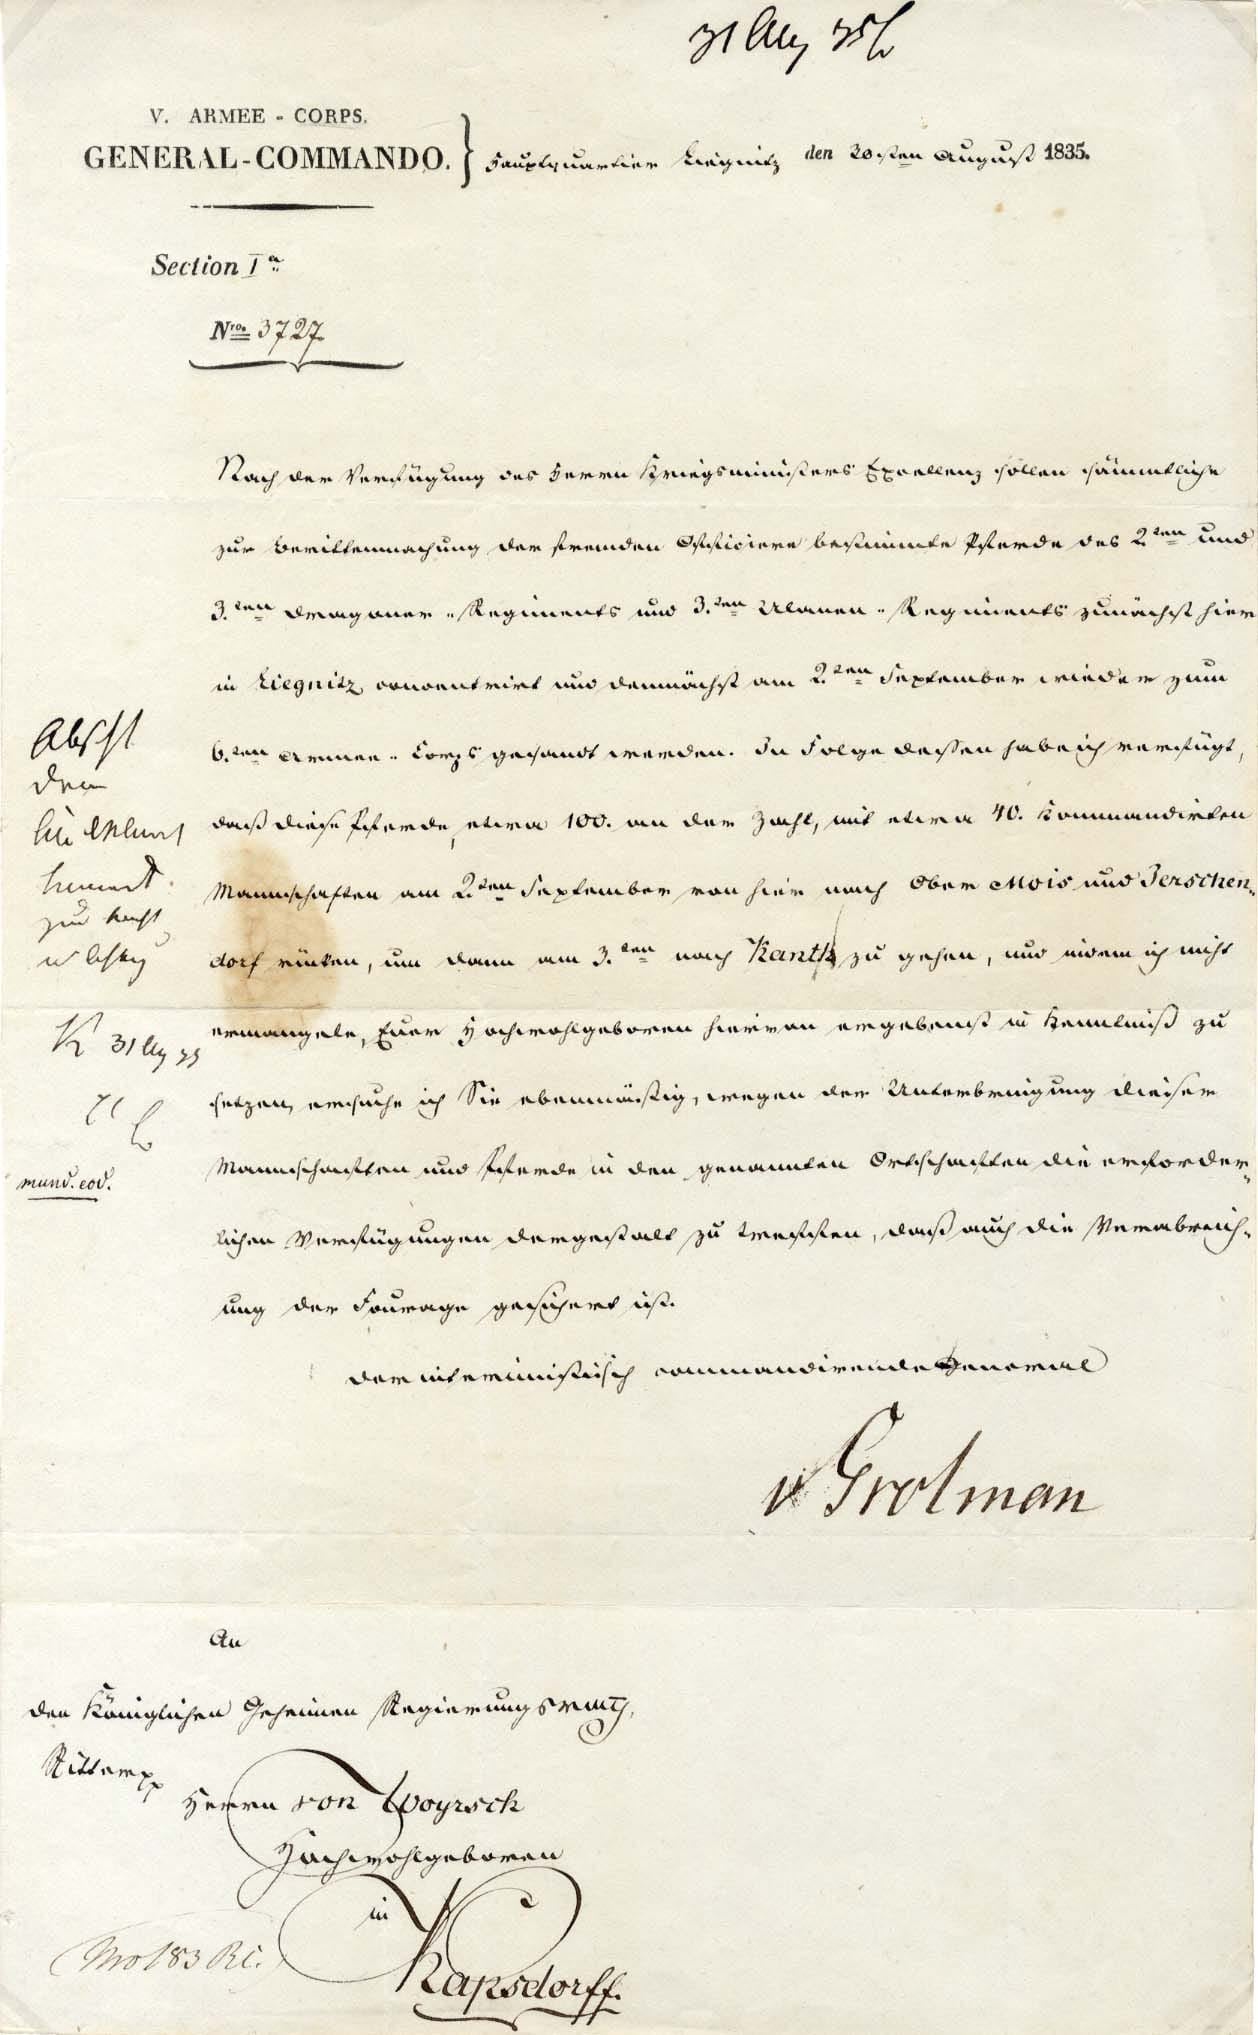 31 Aug 35
V. ARMEE - CORPS.
GENERAL-COMMANDO.
Hauptquartier Liegnitz den 20sten August 1835.
Section Ia
Nro. 3727
Nach der Verfügung des Herrn Kriegsministers Excellenz sollen sämmtliche
zur Berittenmachung der fremden Officiere bestimmte Pferde des 2ten und
3.ten Dragoner-Regiments und 3.ten Ulanen-Regiments zunächst hier
in Liegnitz concentrirt und demnächst am 2ten September wieder zum
6.ten Armee-Corps gesandt werden. In Folge dessen habe ich verfügt,
daß diese Pferde, etwa 100. an der Zahl, mit etwa 40. kommandirten
Mannschaften am 2ten September von hier nach Ober Mois und Jerschen-
dorf rücken, um dann am 3.ten nach Kanth zu gehen, und indem ich nicht
ermangele, Euer Hochwohlgeboren hiervon ergebenst in Kenntniß zu
setzen, ersuche ich Sie ebenmäßig, wegen der Unterbringung dieser
Mannschaften und Pferde in den genannten Ortschaften die erforder-
lichen Verfügungen dergestalt zu treffen, daß auch die Verabreich-
ung der Fourage gesichert ist.
Der interimistisch commandirende General
v Grolman
Abschft
dem
zur
K 31 Aug 35
mund. eod.
An
den Königlichen Geheimen Regierungsrath,
Ritter pp
Herrn von Woyrsch
Hochwohlgeboren
in
Kapsdorff.